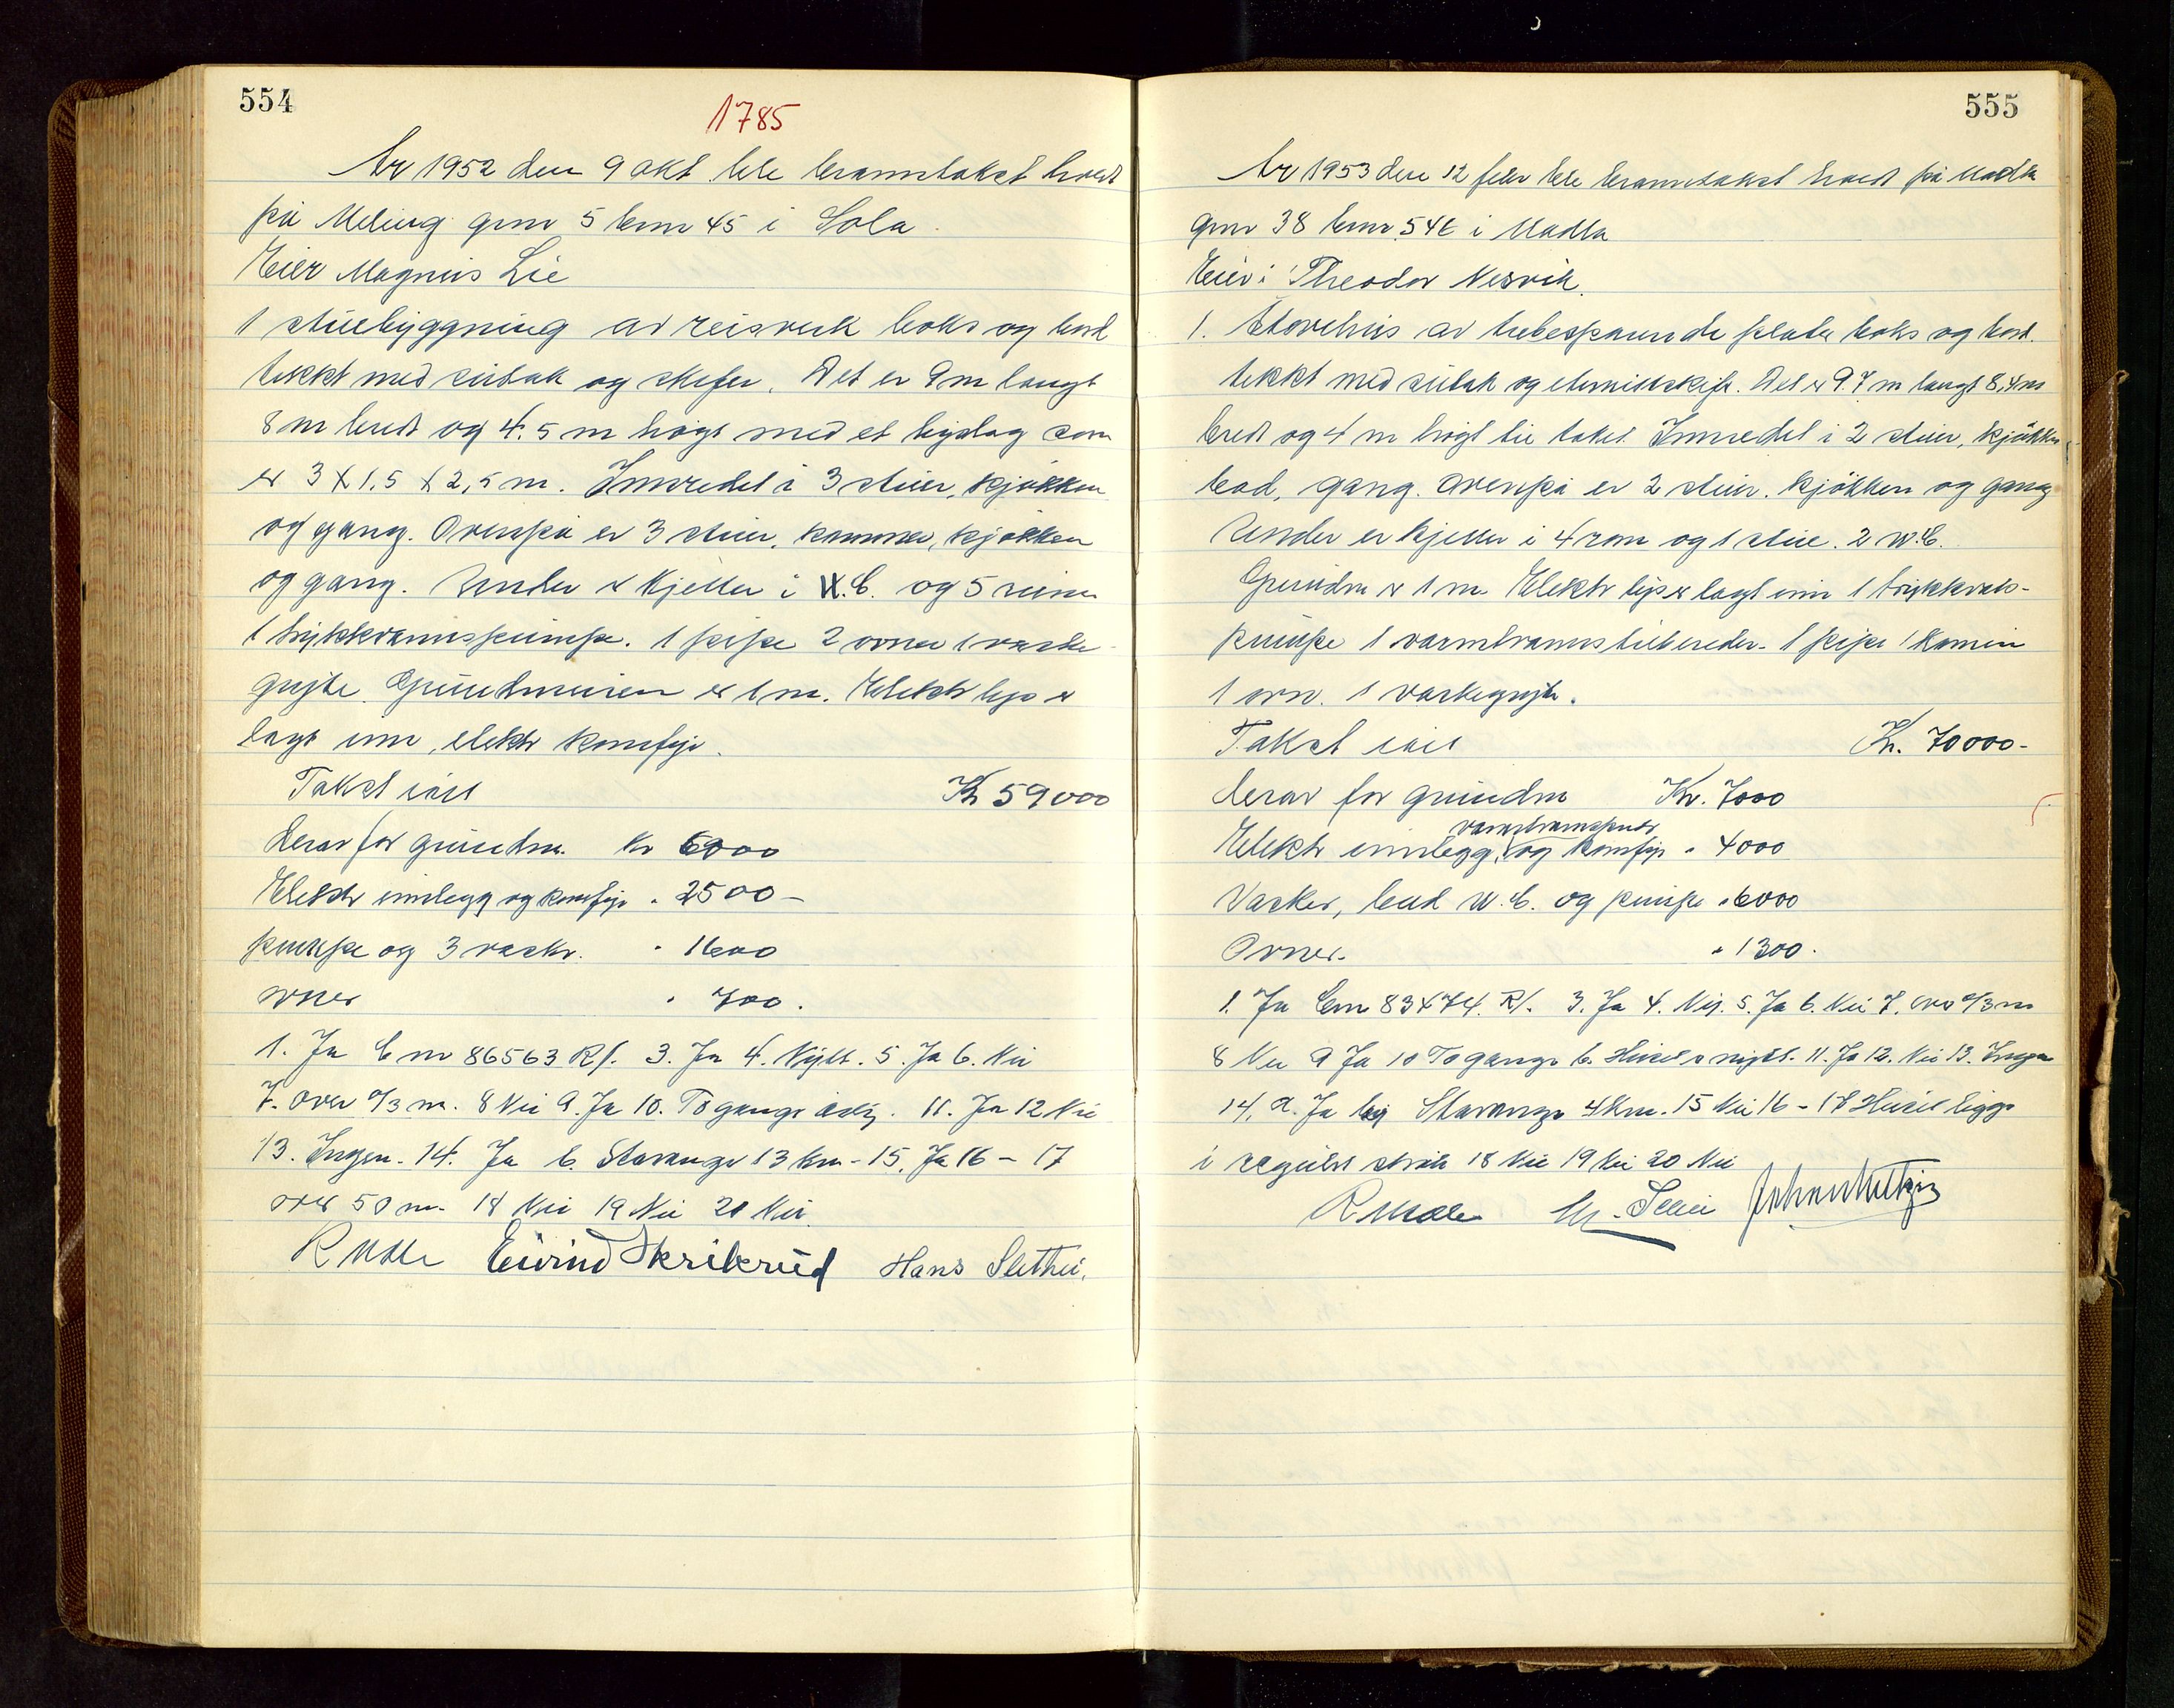 554
1785
År 1952 den 9 okt ble branntakst holdt
på Meling gnr 5 bnr 45 i Sola.
Eier Magnus Lie
1 stuebyggning av reisverk boks og bord
tekkt med sutak og skifer. Det er 9 m langt
8 m bredt og 4.5 m högt med et bijslag som
er 3 X 1,5 X 2,5 m. Innredet i 3 stuer, kjökken
og gang. Ovenpå er 3 stuer, kammer, kjökken
og gang. Under er kjeller i W.C. og 5 rum
1 trykkvannspumpe. 1 pipe 2 ovner 1 vaske-
gryte. Grundmuren er 1 m. Elektr lys er
lagt inn, elektr komfyr.
Takst inkl Kr 59000
Derav for grundm. Kr 6000
Elektr innlegg og komfyr " 2500-
pumpe og 3 vasker. " 1600
ovner " 700.
1. Ja b nr 86563 R/. 3. Ja 4. Nytt. 5. Ja 6. Nei
7. over 2/3 m. 8 Nei 9. Ja 10. To ganger årlig. 11. Ja 12 Nei
13. Ingen. 14. Ja b. Stavanger 13 km - 15. Ja 16 - 17
over 50 m. 18 Nei 19 Nei 20 Nei.
R Malle Eivind Skribrud Hans Slethei.
555
År 1953 den 12 febr ble branntakst holdt på Madla
gnr 38 bnr 546 i Madla
Eier: Theodor Nesvik.
1. Stovehus av trebespaunde plater boks og bord.
tekkt med sutak og eternittskifer. Det er 9.7 m langt 8,4 m
bredt og 4 m högt til taket. Innredet i 2 stuer, kjökken
bad, gang. Ovenpå er 2 stuer. kjökken og gang
Under er kjeller i 4 rom og 1 stue. 2 W.C.
Grundm er 1 m. Elektr lys er lagt inn 1 trykkvats-
pumpe 1 varmtvannstilbereder. 1 pipe 1 kamin
1 ovn. 1 vaskegryte.
Takst inkl Kr. 70000-
derav for grundm Kr. 7000
varmtvannsbereder
Elektr innlegg, og komfyr " 4000
Vasker, bad W.C. og pumpe " 6000
Ovner. " 1300.
1. Ja bnr 83474. R/. 3. Ja 4. Ny. 5. Ja 6. Nei 7. over 2/3 m
8 Nei 9 Ja 10 To ganger b. Huset er nytt. 11. Ja 12. Nei 13. Ingen
14. a. Ja by Stavanger 4 km. 15 Nei 16 - 17 Huset ligger
i regulert strök 18 Nei 19 Nei 20 Nei
R Malle